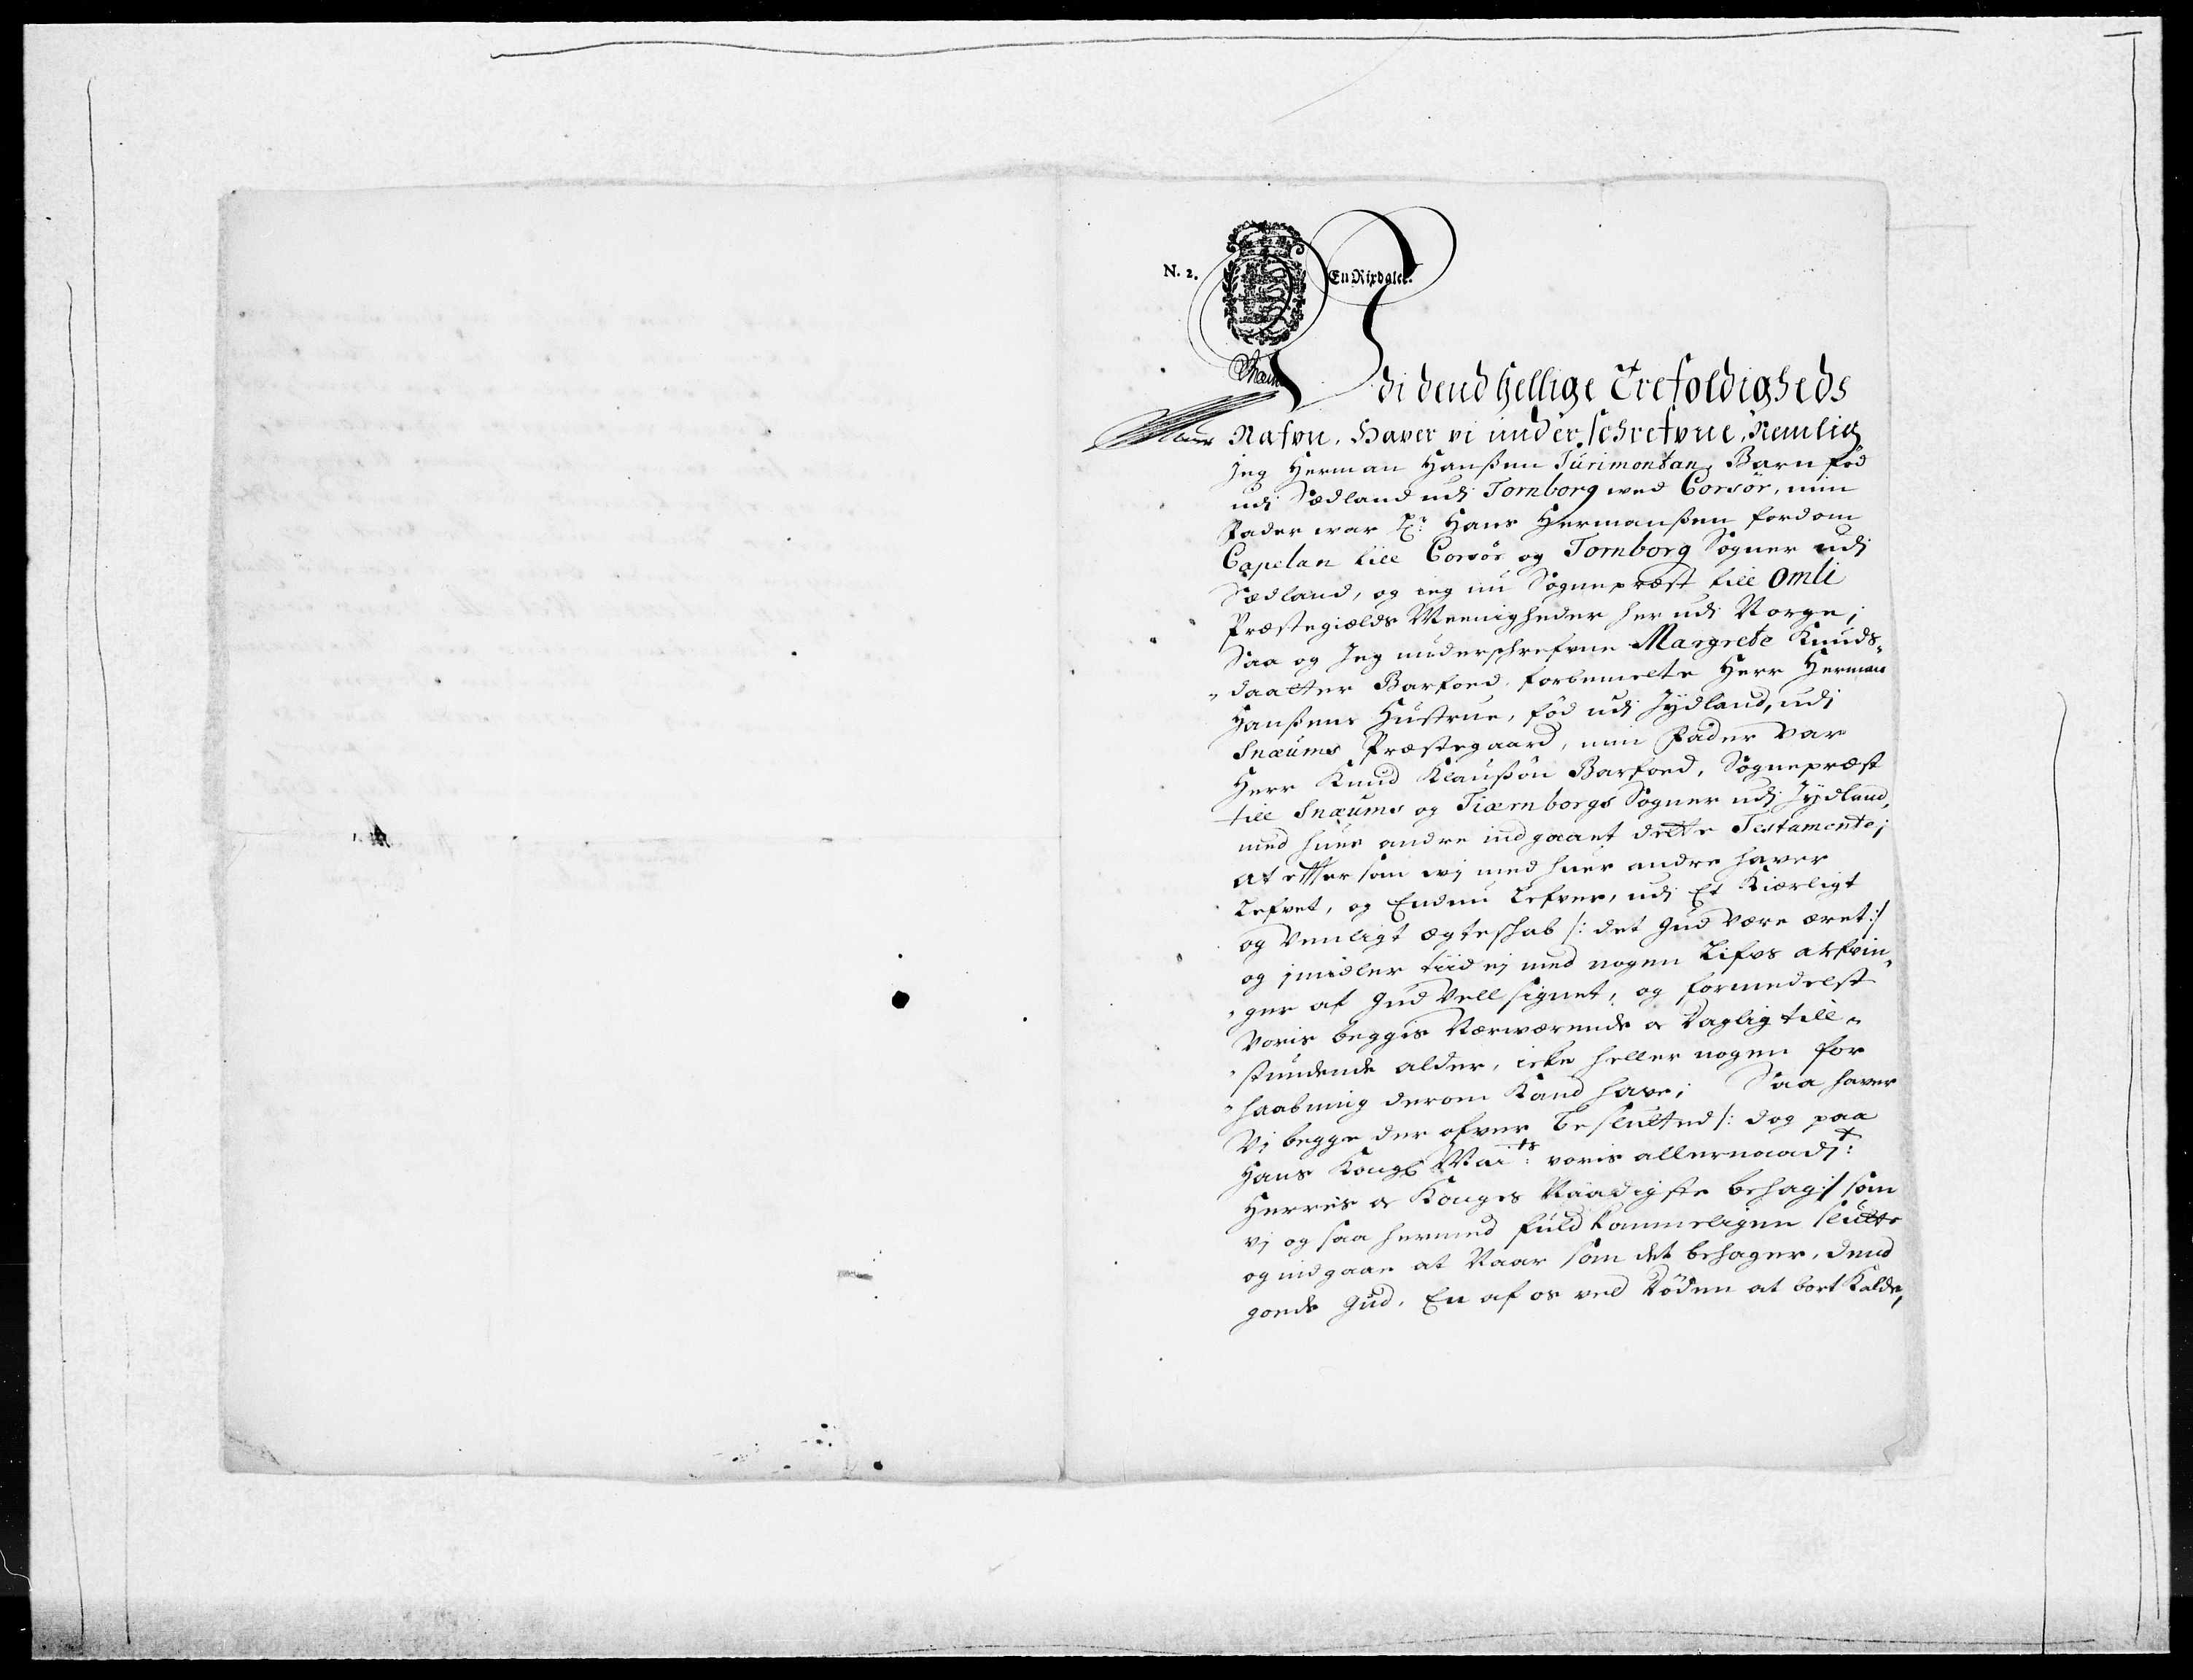 N. 2.
En Rixdaler.
Udi dend hellige Trefoldigheds
Nafvn, Haver vi underschrefvne, Nemlig
Jeg Herman Hanßen Turimontan, Barn fød
udi Sædland udi Tornborg wed Corsør, min
Fader war Hr: Hans Hermanßen fordom
Capelan till Corsør og Tornborg Sogner udi
Sædland, og ieg nu Sognepræst till Omli
Præstegields Meenigheder her udi Norge;
Saa og Jeg underschrefvne Margrete Knuds„
„daatter Barfoed, forbemelte Herr Herman
Hanßens Hustrue, fød udi Jydland, udi
Snæums Præstegaard, min Fader var
Herr Knud Klaußøn Barfoed, Sognepræst
till Snæums og Tiærnborgs Sogner udi Jydland,
med huer andre indgaaet dette Testamente;
At effter som wi med huer andre haver
Lefvet, og Endnu Lefver, udi Et Kiærligt
og Venligt ægteskab /: det Gud være æret :/
og imidler tiid ej med nogen Lifvs arfvin„
„ger af Gud Vellsignet, og formedelst
Voris beggis Nærværende og Daglig till„
„stundende alder, icke heller nogen for
„haabning derom Kand have; Saa haver
Vi begge der ofver beslutted /: dog paa
Hans Kongl Maits: voris allernaadt:
Herris og Konges Naadigste behag :/ som
vi og saa hermed fuldkommeligen slutte
og indgaar at Naar som det behager, dend
goede Gud, En af os ved Døden at bort Kalde,